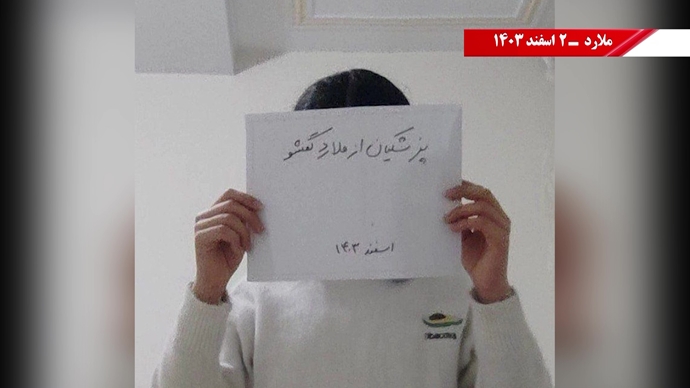 ملارد – ۲ اسفند ۱۴۰۳
پزشکیان از ملارد گمشو
اسفند ۱۴۰۳